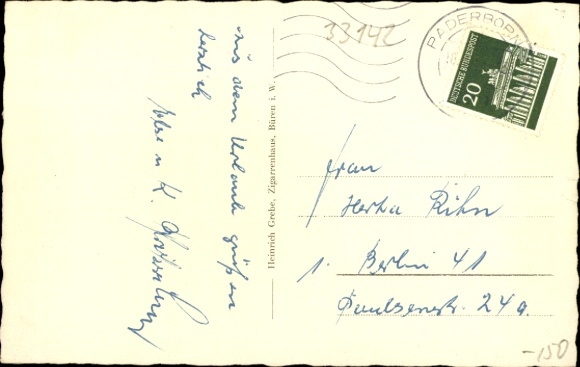 33142
PADERBORN
DEUTSCHE BUNDESPOST
20
Aus dem Urlaub grüßen
herzlich
Else u. K.
Heinrich Grebe, Zigarrenhaus, Büren i. W.
Frau
Herta Rihn
1 Berlin 41
Paulsenstr. 24a.
-150